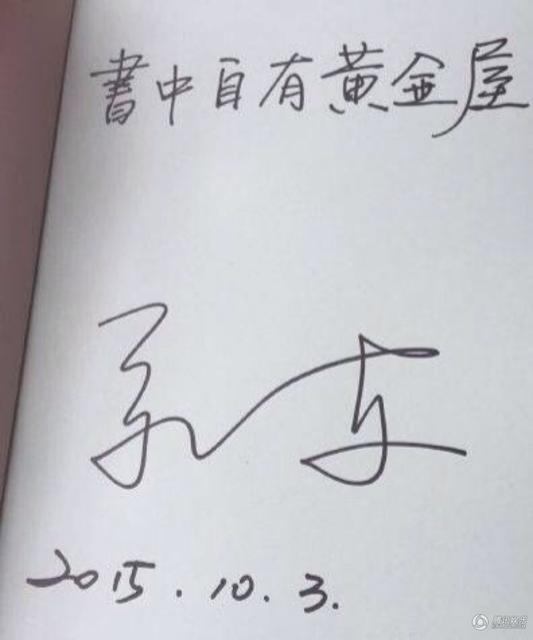 書中自有黄金屋
2015.10.3.